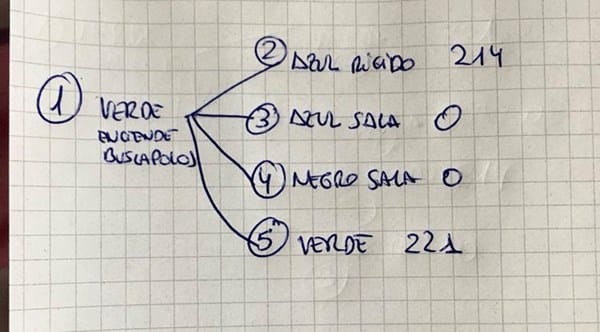 ② AZUL RIGIDO 214
① VERDE
③ AZUL SALA 0
ENCIENDE
BUSCAPOLOS
④ NEGRO SALA 0
⑤ VERDE 221